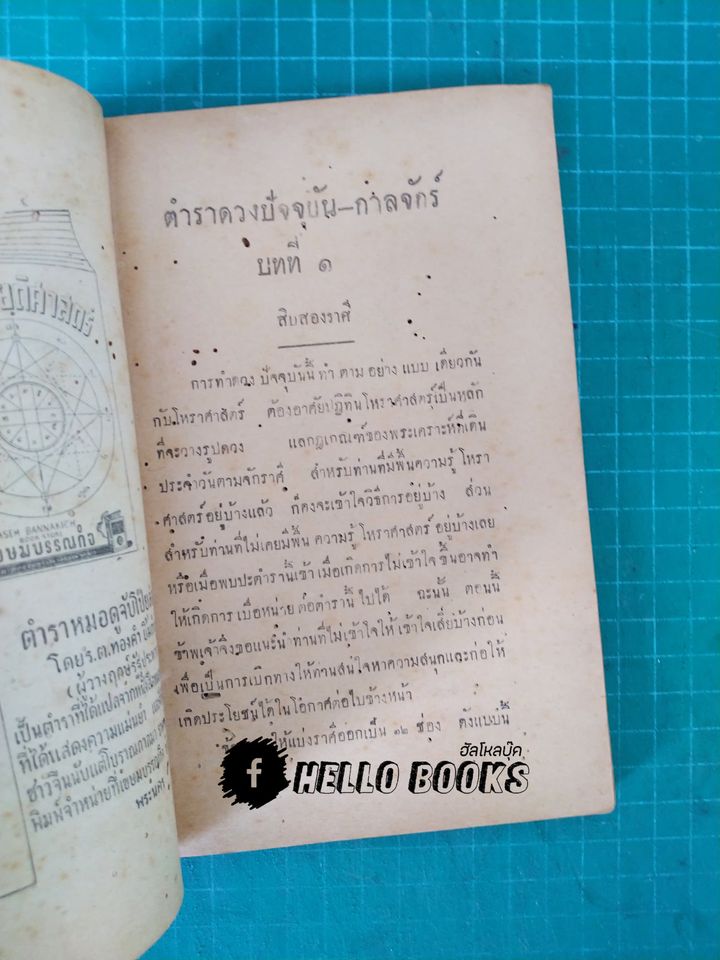 ยุติศาสตร์
BANNAKICH
BOOK STORE
ษมบรรณกิจ
ตำราหมอดูจับโป๊ย
โดยร.ต.ทองคำ
เป็นตำราที่ได้แปลจาก
ที่ได้แสดงความแม่นยำ
ชาวจีนนับแต่โบราณกาลมา
พิมพ์จำหน่ายที่เขษมบรรณกิจ
พระนคร
ตำราดวงปัจจุบัน–กาลจักร์
บทที่ ๑
สิบสองราศี
การทำดวง ปัจจุบันนี้ ทำ ตาม อย่าง แบบ เดียวกัน
กับโหราศาสตร์ ต้องอาศัยปฏิทินโหราศาสตร์เป็นหลัก
ที่จะวางรูปดวง และกฎเกณฑ์ของพระเคราะห์ที่เดิน
ประจำวันตามจักราศี สำหรับท่านที่มีพื้นความรู้ โหรา
ศาสตร์อยู่บ้างแล้ว ก็คงจะเข้าใจวิธีการอยู่บ้าง ส่วน
สำหรับท่านที่ไม่เคยมีพื้น ความรู้ โหราศาสตร์ อยู่บ้างเลย
หรือเมื่อพบปะตำรานี้เข้า เมื่อเกิดการไม่เข้าใจ ขึ้นอาจทำ
ให้เกิดการ เบื่อหน่าย ต่อตำรานี้ ไปได้ ฉะนั้น ตอนนี้
ข้าพเจ้าจึงขอแนะนำ ท่านที่ไม่เข้าใจให้ เข้าใจเสียบ้างก่อน
เพื่อเป็นการเบิกทางให้ท่านสนใจหาความสนุกและก่อให้
เกิดประโยชน์ได้ในโอกาศต่อไปข้างหน้า
ให้แบ่งราศีออกเป็น ๑๒ ช่อง ดังแบบนี้
ฮัลโหลบุ๊ค
f HELLO BOOKS